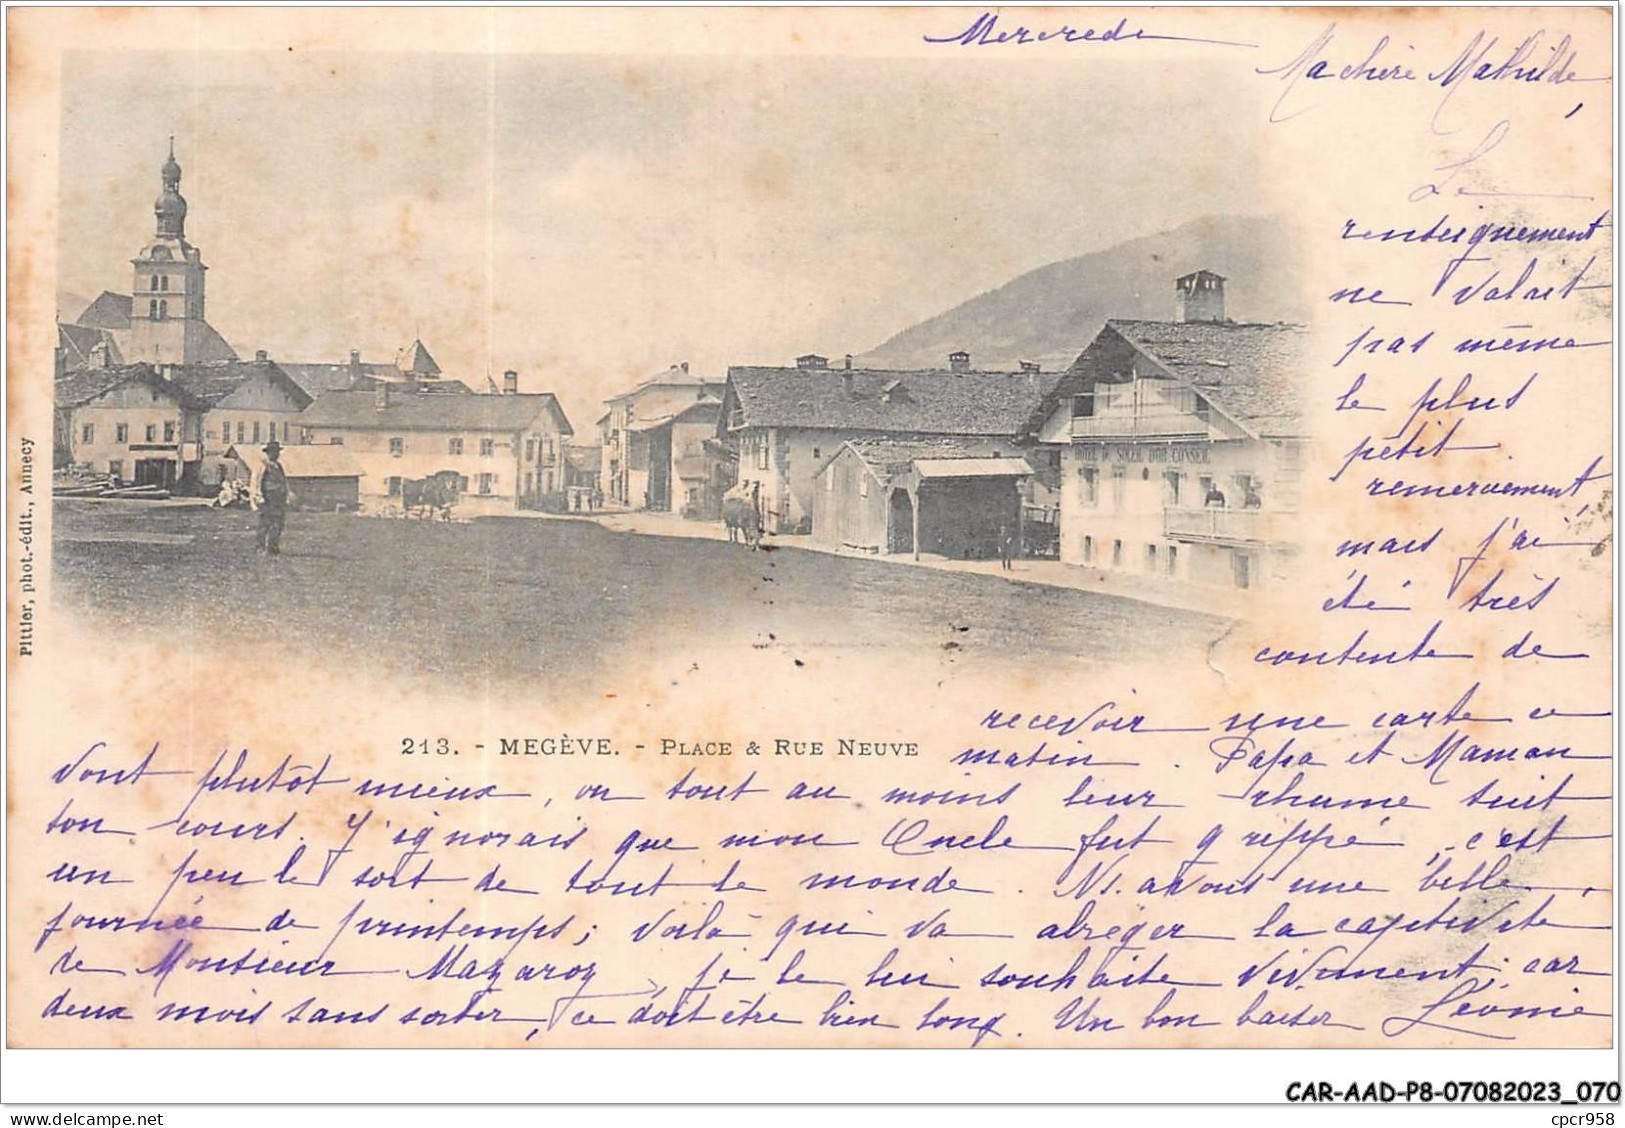 Mercredi
Ma chère Mathilde,
Le
renseignement
ne valait
pas même
le plus
petit
remerciement,
mais j'ai
été très
contente de
recevoir une carte ce
matin. Papa et Maman
vont plutôt mieux, ou tout au moins leur rhume suit
son cours. J'ignorais que mon Oncle fut grippé, c'est
un peu le sort de tout le monde. Ns. avons une belle
journée de printemps; voilà qui va abréger la captivité
de Monsieur Mazaroz, je le lui souhaite vivement; car
deux mois sans sortir, ce doit être bien long. Un bon baiser Léonie
HÔTEL DU SOLEIL D'OR CONSEIL
213. - MEGÈVE. - PLACE & RUE NEUVE
Pittier, phot.-édit., Annecy
CAR-AAD-P8-07082023_070
cpcr958